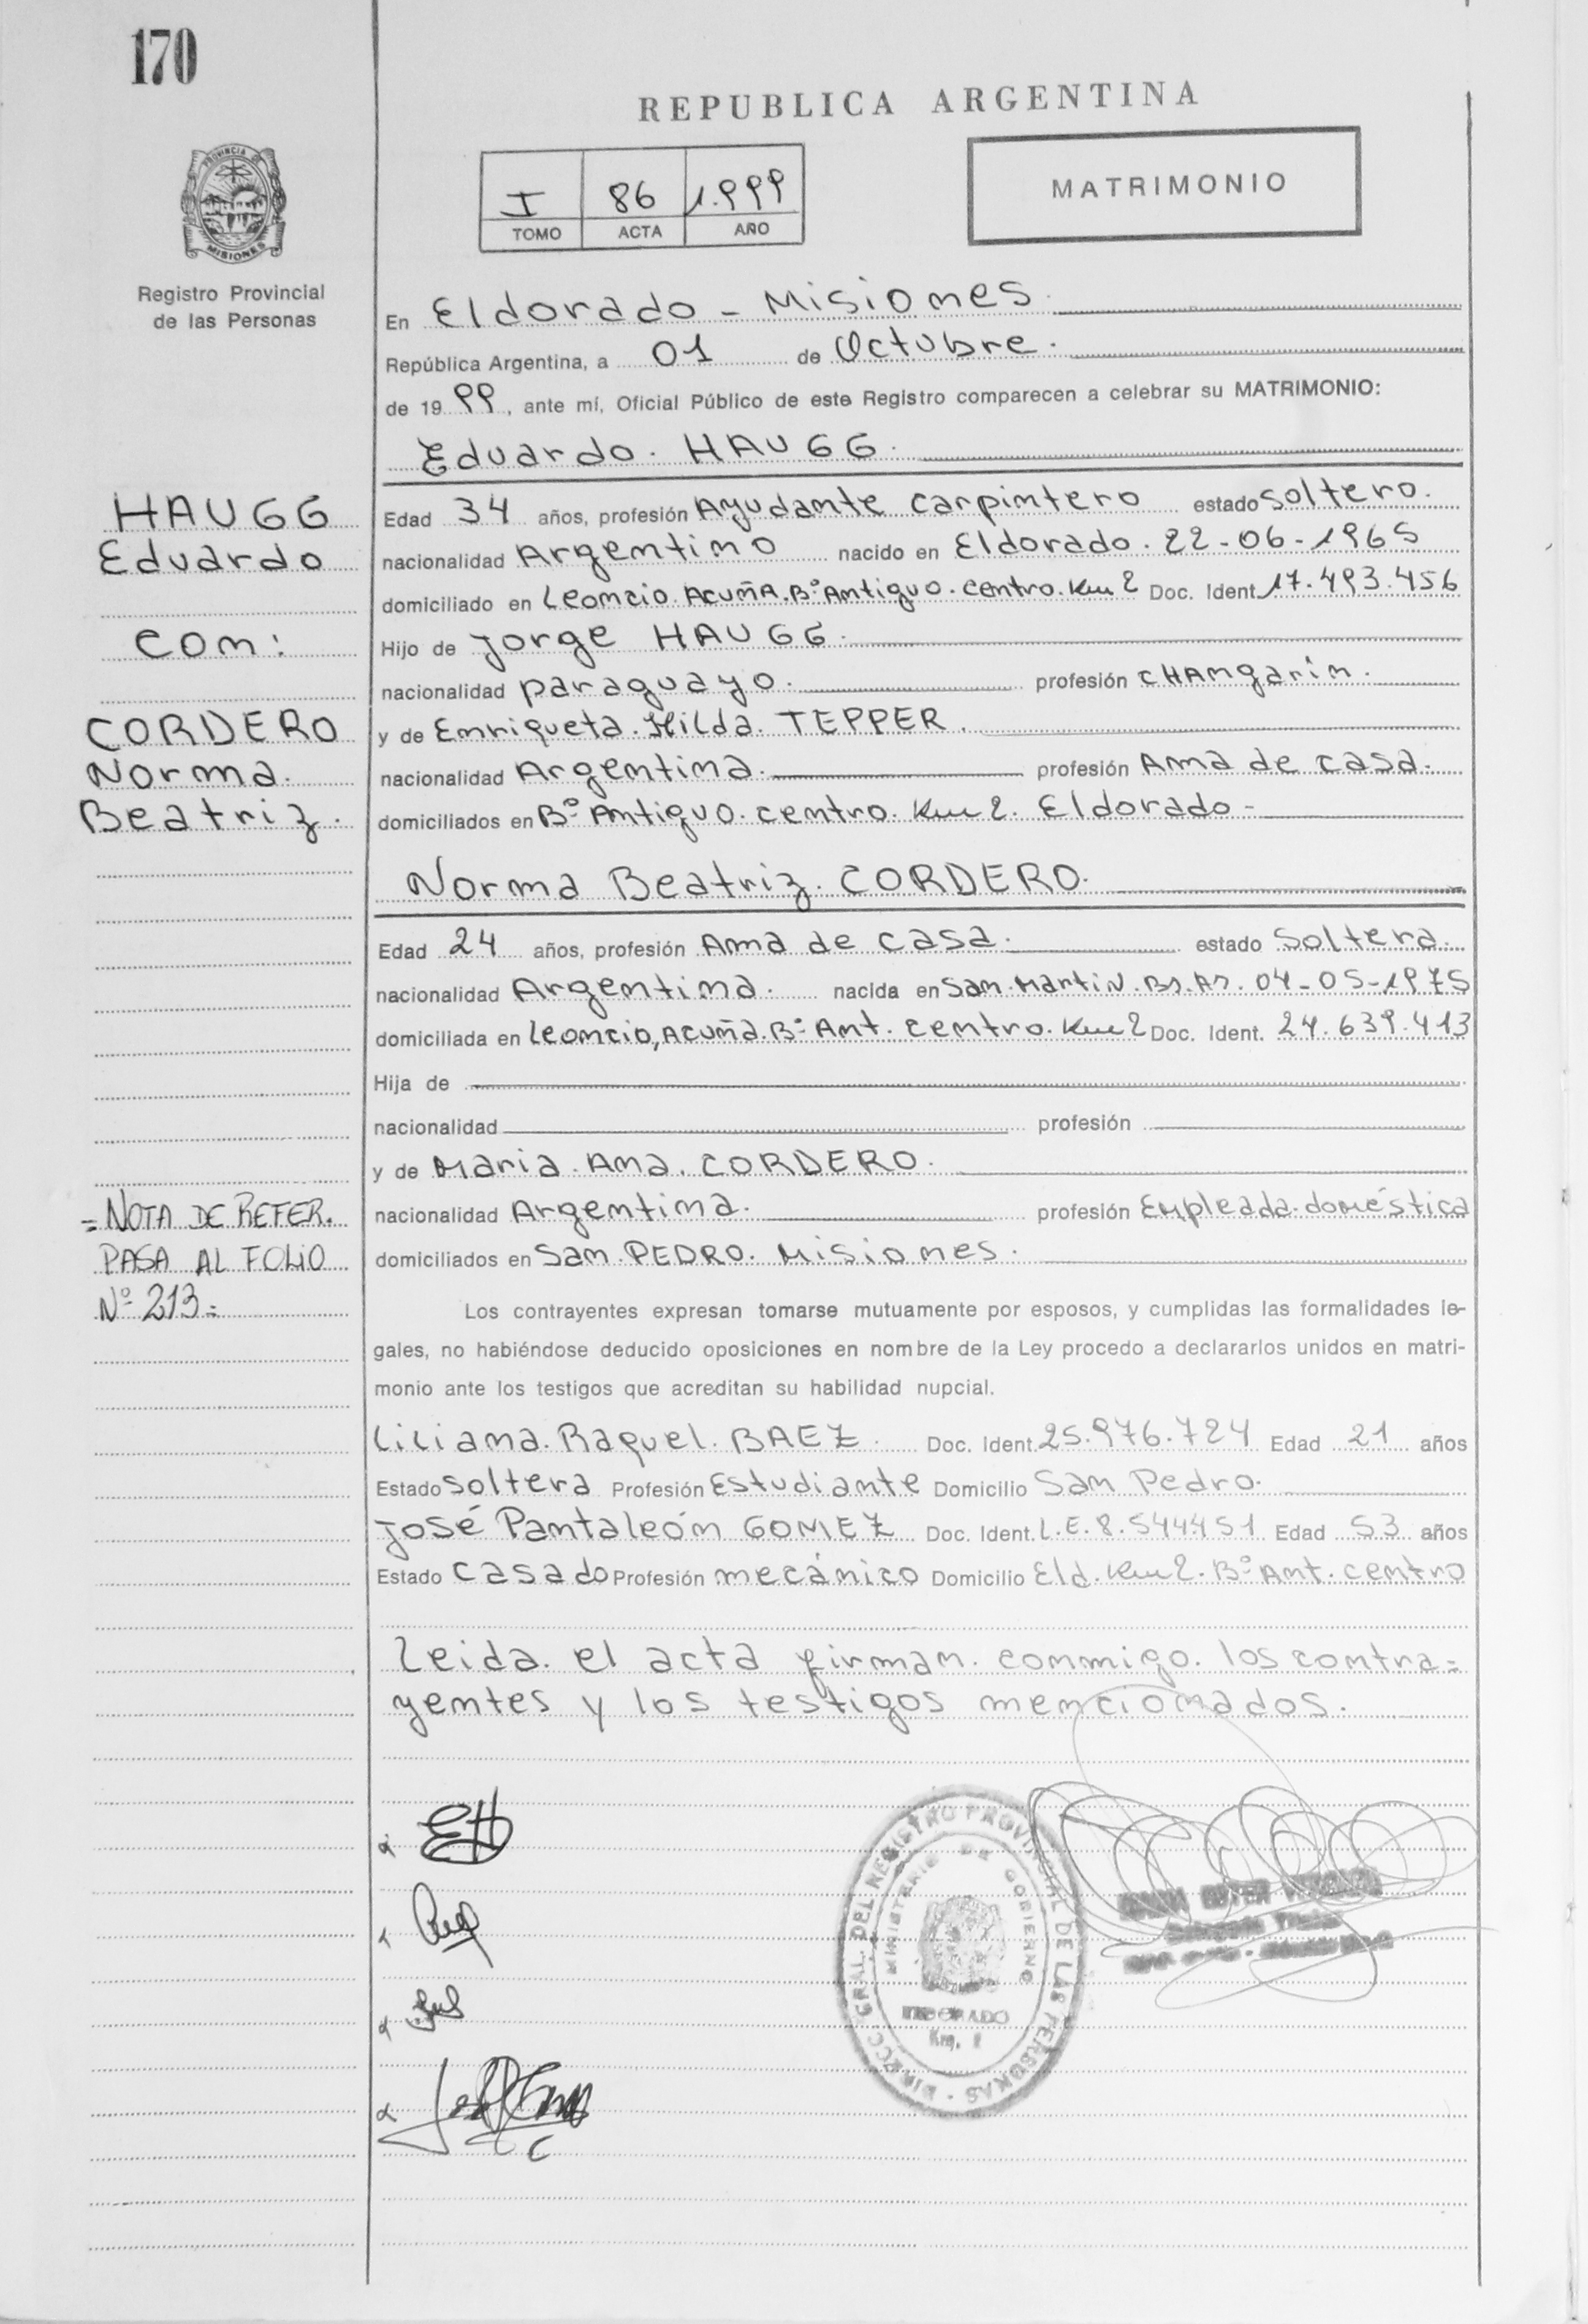 170
REPUBLICA ARGENTINA
PROVINCIA DE
MISIONES
Registro Provincial
de las Personas
I 86 1.999
TOMO ACTA AÑO
MATRIMONIO
En Eldorado - Misiones.
República Argentina, a 01 de Octubre.
de 19 99, ante mí, Oficial Público de este Registro comparecen a celebrar su MATRIMONIO:
Eduardo. HAUGG.
HAUGG
Eduardo
con:
CORDERO
Norma.
Beatriz.
Edad 34 años, profesión Ayudante carpintero estado soltero.
nacionalidad Argentino nacido en Eldorado. 22-06-1965
domiciliado en Leoncio Acuña. Bº Antiguo. centro. Km 2 Doc. Ident. 17.493.456
Hijo de Jorge HAUGG.
nacionalidad paraguayo. profesión CHAngarin.
y de Enriqueta. Hilda. TEPPER.
nacionalidad Argentina. profesión Ama de casa.
domiciliados en Bº Antiguo. centro. Km 2. Eldorado-
Norma Beatriz. CORDERO.
Edad 24 años, profesión Ama de casa. estado Soltera.
nacionalidad Argentina. nacida en San. Martin. Bs. As. 04-05-1975
domiciliada en Leoncio, Acuña. Bº Ant. centro. Km 2 Doc. Ident. 24.639.413
Hija de
nacionalidad profesión
y de Maria. Ana. CORDERO.
nacionalidad Argentina. profesión Empleada. doméstica
domiciliados en San. PEDRO. Misiones.
= NOTA DE REFER.
PASA AL FOLIO
Nº 213 =
Los contrayentes expresan tomarse mutuamente por esposos, y cumplidas las formalidades le-
gales, no habiéndose deducido oposiciones en nombre de la Ley procedo a declararlos unidos en matri-
monio ante los testigos que acreditan su habilidad nupcial.
Liliana. Raquel. BAEZ. Doc. Ident. 25.976.724 Edad 21 años
Estado soltera Profesión Estudiante Domicilio San Pedro.
José Pantaleón GOMEZ Doc. Ident. L.E. 8.544451 Edad 53 años
Estado casado Profesión mecánico Domicilio Eld. Km 2. Bº Ant. centro
Leida. el acta firman. conmigo. los contra=
yentes y los testigos mencionados.
DIRECC. GRAL. DEL REGISTRO PROVINCIAL DE LAS PERSONAS
MINISTERIO DE GOBIERNO
Km. 2